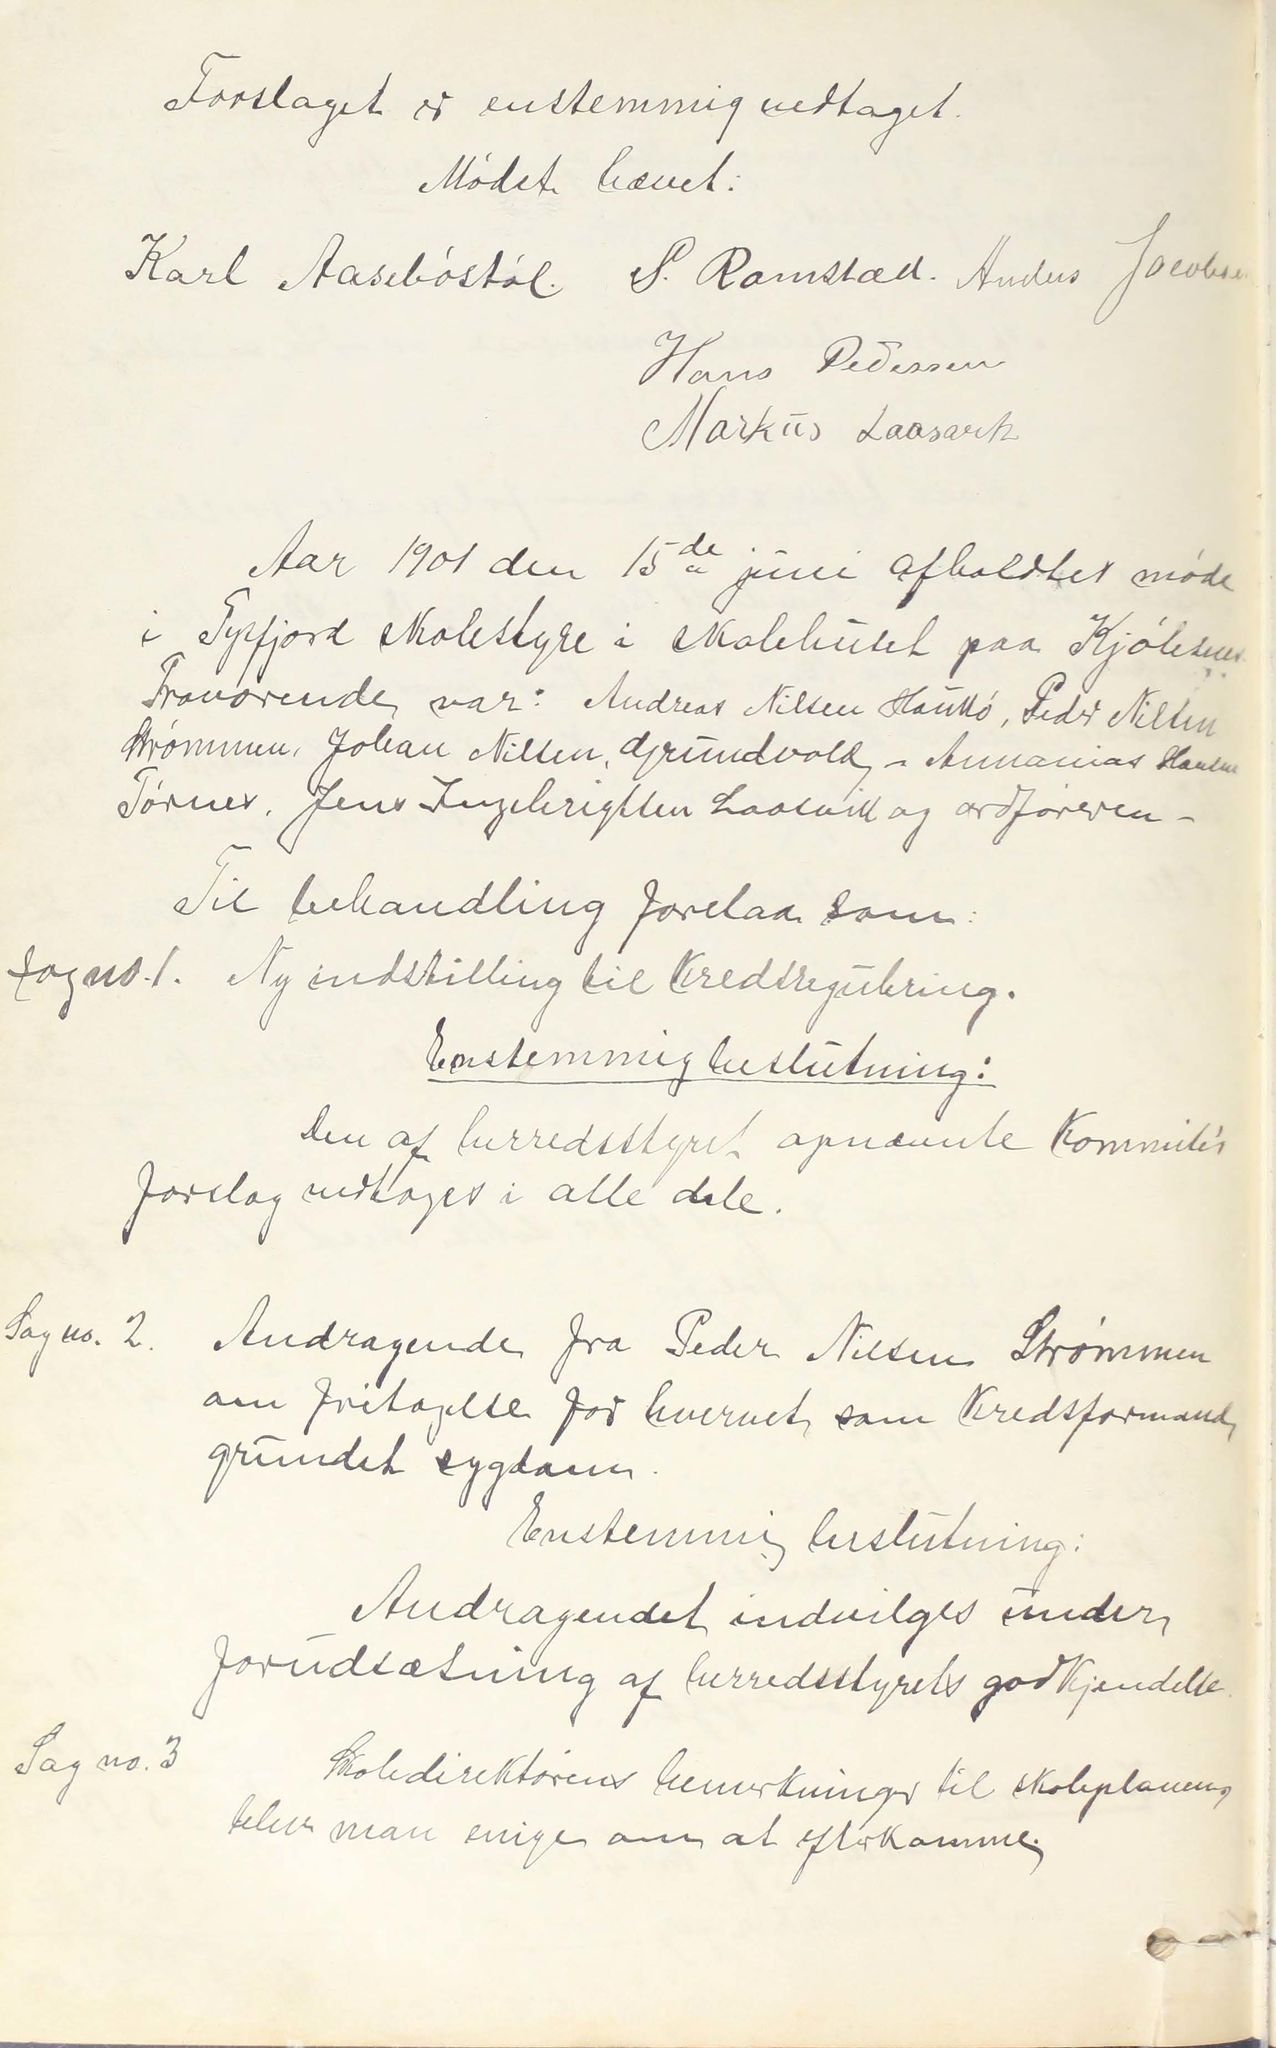 Forslaget er enstemmig vedtaget.
Mødet hævet:
Karl Aasebøstøl. S. Ramstad. Anders Jacobsen
Hans Pedersen
Markus Laasavik
Aar 1901 den 15de juni afholdtes møde
i Tysfjord skolestyre i skolehuset paa Kjøbsnes.
Fraværende var: Andreas Nilsen Haukø, Peder Nilsen
Strømmen, Johan Nilsen, Grundvold, - Annanias Hansen
Tørnes, Jens Ingebrigtsen Laasvik og ordføreren -
Til behandling forelaa som:
Sag no. 1. Ny indstilling til kredsregulering.
Enstemmig beslutning:
Den af herredsstyret opnævnte kommités
forslag vedtoges i alle dele.
Sag no. 2. Andragende fra Peder Nilsen Strømmen
om fritagelse for hvervet som kredsformand,
grundet sygdom.
Enstemmig beslutning:
Andragendet indvilges under
forudsætning af herredsstyrets godkjendelse.
Sag no. 3 Skoledirektørens bemerkninger til skoleplanen,
blev man enige om at efterkomme.